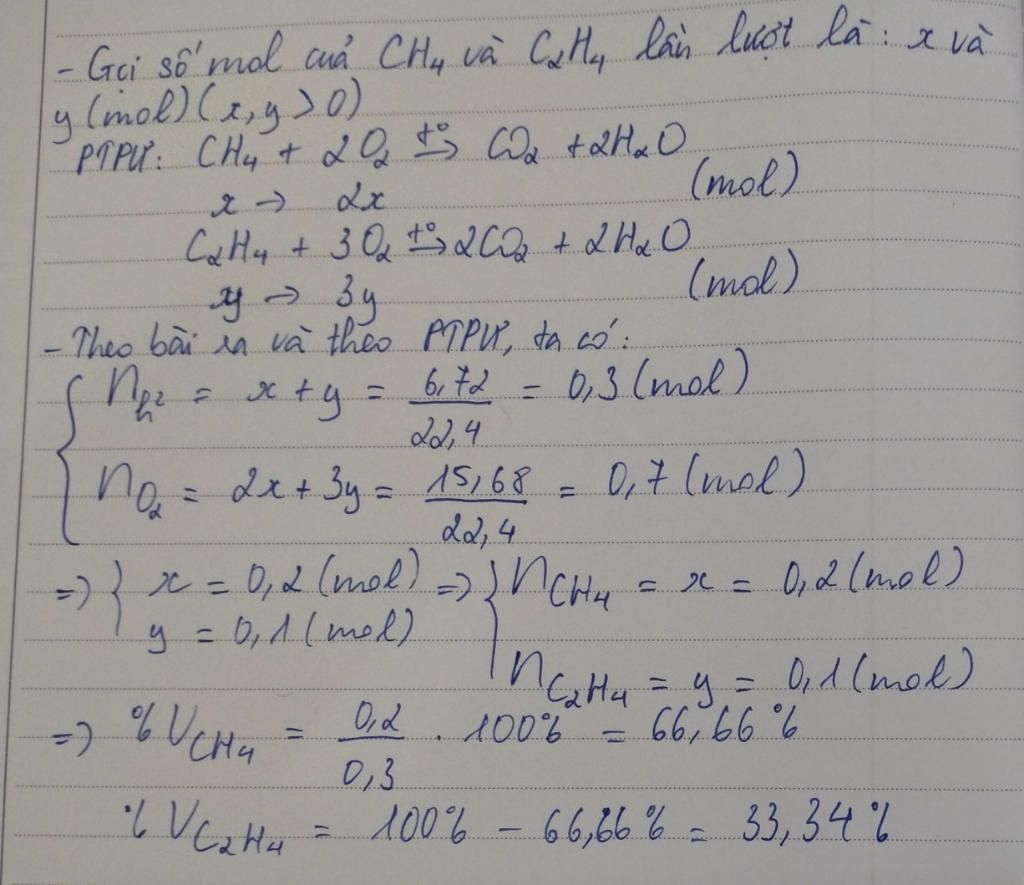 - Gọi số mol của CH₄ và C₂H₄ lần lượt là : x và
y (mol) (x, y > 0)
PTPƯ: CH₄ + 2O₂ t°→ CO₂ + 2H₂O
x → 2x (mol)
C₂H₄ + 3O₂ t°→ 2CO₂ + 2H₂O
y → 3y (mol)
- Theo bài ra và theo PTPƯ, ta có :
n_hh = x + y = 6,72 / 22,4 = 0,3 (mol)
n_O₂ = 2x + 3y = 15,68 / 22,4 = 0,7 (mol)
=> { x = 0,2 (mol) => { n_CH₄ = x = 0,2 (mol)
y = 0,1 (mol)
n_C₂H₄ = y = 0,1 (mol)
=> %V_CH₄ = 0,2 / 0,3 . 100% = 66,66%
%V_C₂H₄ = 100% - 66,66% = 33,34%